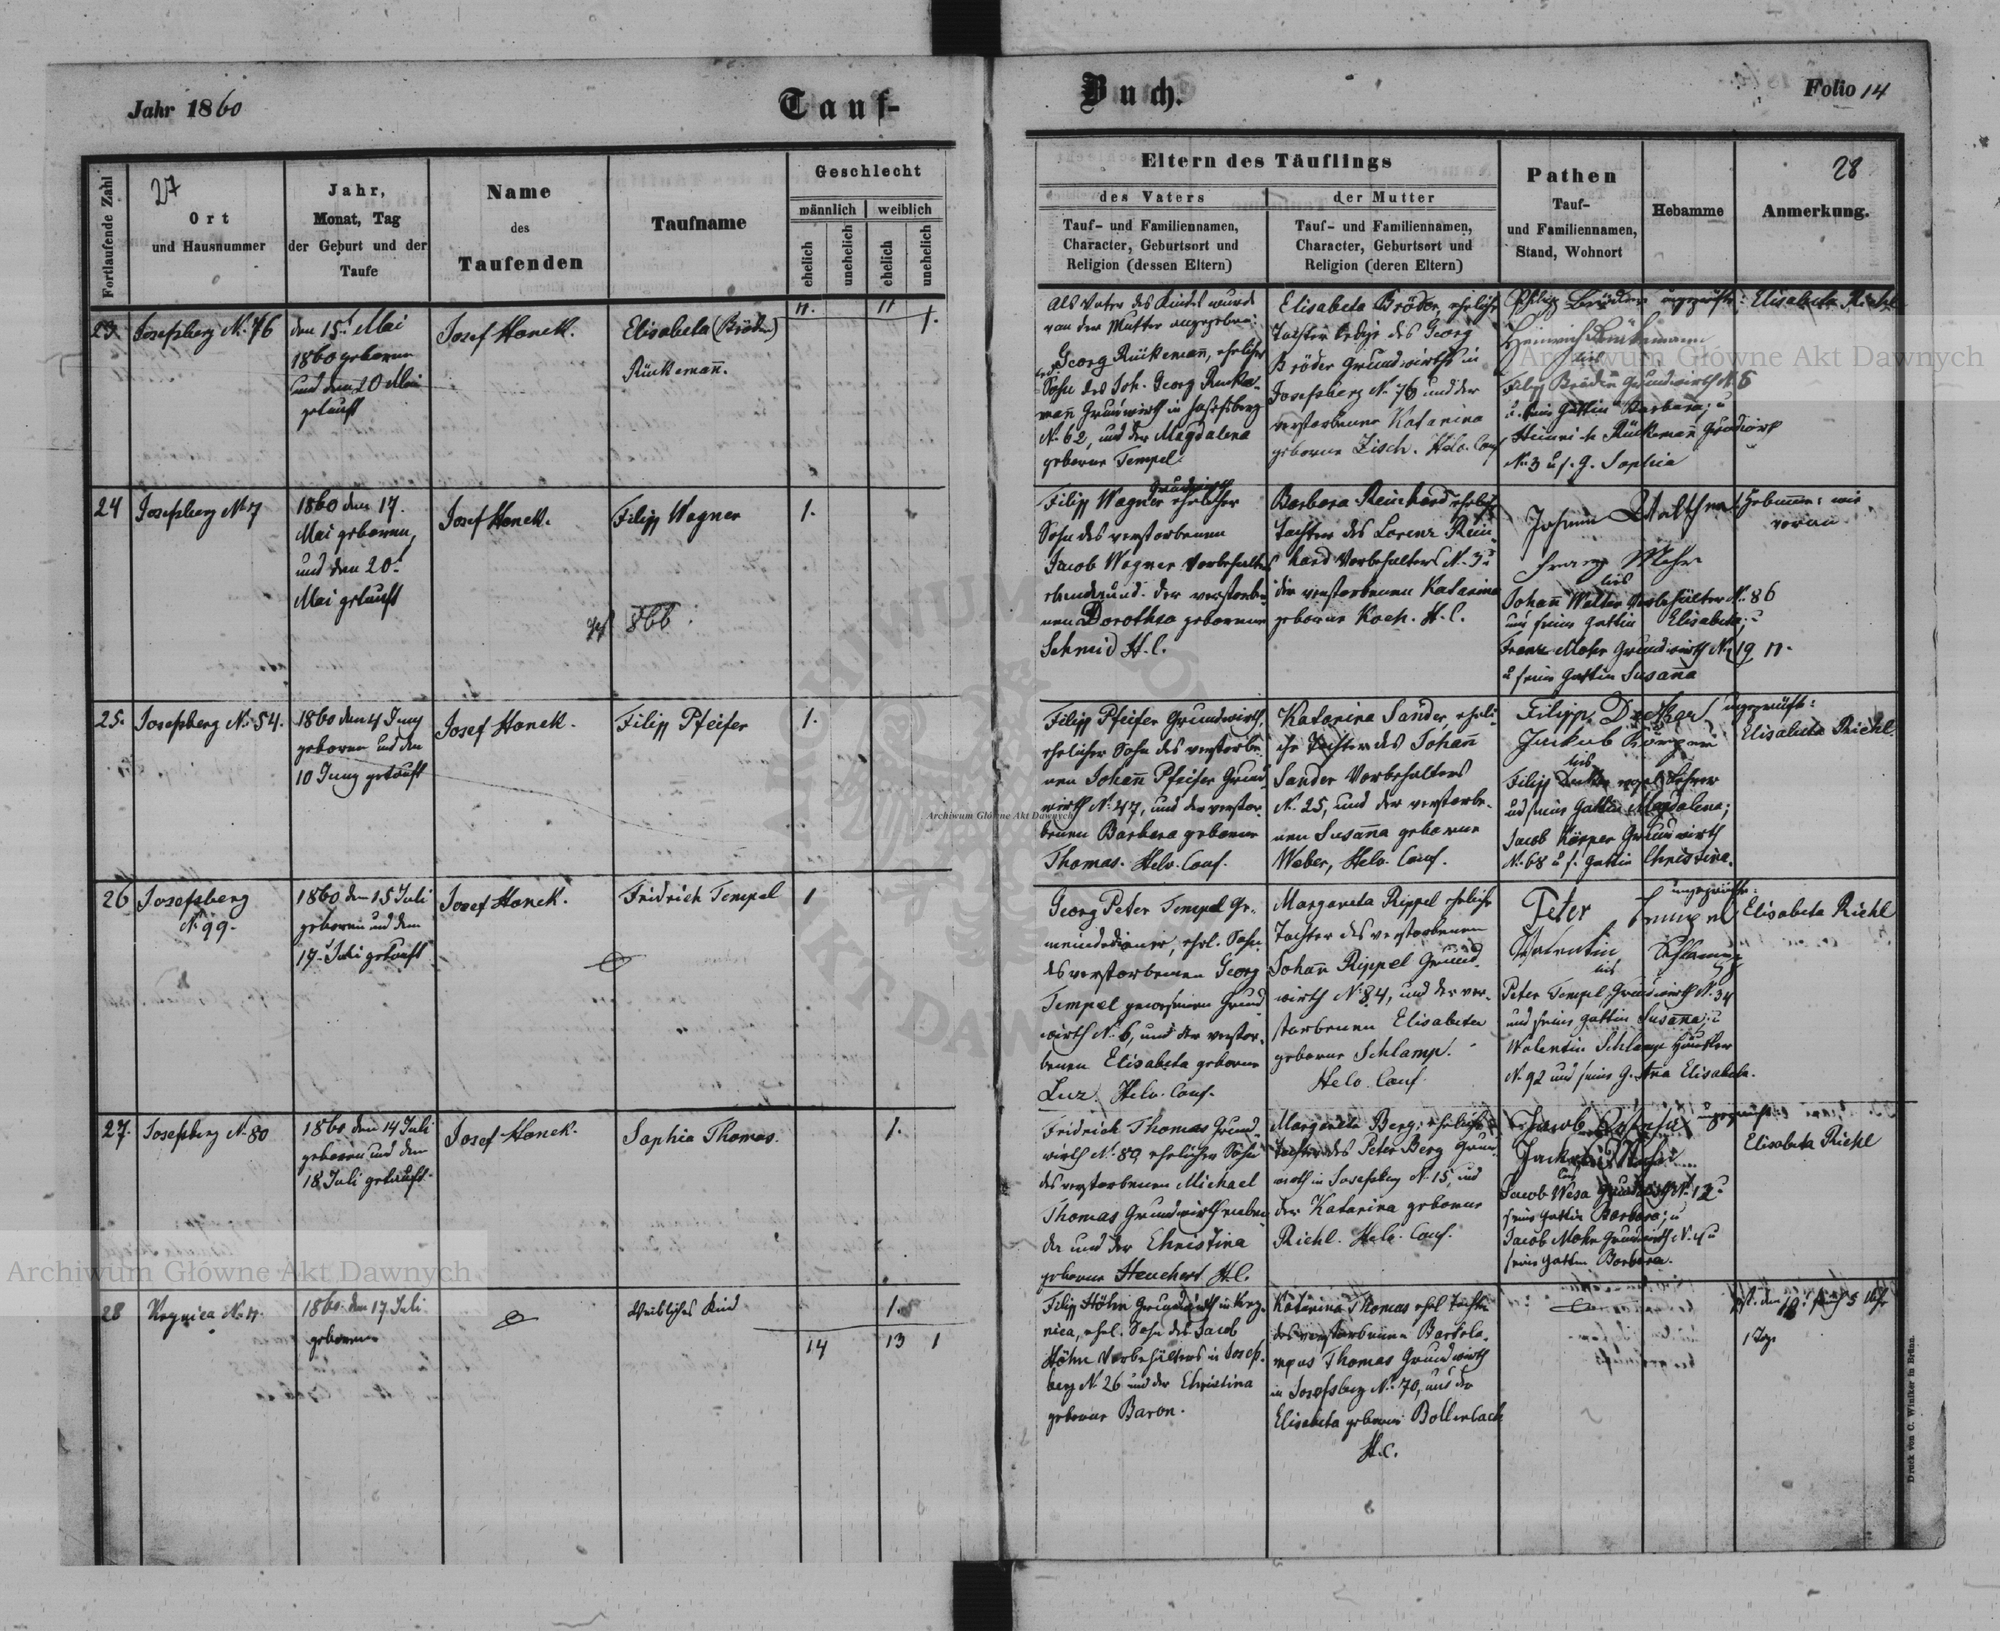 Jahr 1860
Tauf-
Buch.
Folio 14
Fortlaufende Zahl
27
Ort
und Hausnummer
Jahr,
Monat, Tag
der Geburt und der
Taufe
Name
des
Taufenden
Taufname
Geschlecht
männlich
weiblich
ehelich
unehelich
ehelich
unehelich
Eltern des Täuflings
des Vaters
der Mutter
Tauf- und Familiennamen,
Character, Geburtsort und
Religion (dessen Eltern)
Tauf- und Familiennamen,
Character, Geburtsort und
Religion (deren Eltern)
Pathen
Tauf-
und Familiennamen,
Stand, Wohnort
Hebamme
28
Anmerkung.
11. 11
23. Josefsberg N. 76
den 15t Mai
1860 geboren
und den 20 Mai
getauft
Josef Hanek.
Elisabeta (Bröder)
Rückemañ.
1.
Als Vater des Kindes wurde
von der Mutter angegeben:
Georg Rückemañ, ehelicher
Sohn des Joh. Georg Rucke-
mañ Grundwirth in Josefsberg
N. 62, und der Magdalena
geborne Tempel.
Elisabeta Bröder, eheliche
Tochter ledige des Georg
Bröder Grundwirths in
Josefsberg N. 76 und der
verstorbenen Katarina
geborne Zisch. Helv. Conf
Philipp Bröder
Heinrich Rückemann
Filipp Bröder Grundwirth N. 8
u. seine Gattin Barbara; u
Heinrich Rückemañ Grudwirt
N. 3 u s. G. Sophia
ungeprüfte: Elisabeta Riehl
24 Josefsberg N. 7
1860 den 17.
Mai geboren,
und den 20.
Mai getauft
Josef Hanek.
Filipp Wagner
1.
866
Filipp Wagner Grundwirth ehelicher
Sohn des verstorbenen
Jacob Wagner Vorbehalters
und der verstorbe-
nen Dorothea geborene
Schmid H. C.
Barbara Reinhard eheliche
Tochter des Lorenz Rein-
hard Vorbehalters N. 3 u
der verstorbenen Katarina
geborne Koch. H. C.
Johann Walther
Franz Mohr
Johañ Walter Vorbehälter N. 86
und seine Gattin Elisabeta; u
Franz Mohr Grundwirth N. 19
u seine Gattin Susaña
Hebamme: wie
voran
25. Josefsberg N. 54.
1860 den 4 Juny
geboren und den
10 Juny getauft
Josef Hanek.
Filipp Pfeifer
1.
Filipp Pfeifer Grundwirth,
ehelicher Sohn des verstorbe-
nen Johañ Pfeifer Grund-
wirth N. 47, und der verstor-
benen Barbara geborne
Thomas. Helv. Conf.
Katarina Sander, eheli-
che Tochter des Johañ
Sander Vorbehalters
N. 25, und der verstorbe-
nen Susaña geborne
Weber, Helv. Conf.
Filipp Decker
Jakob Körper
Filipp Lehrer
und seine Gattin Magdalena;
Jacob Körper Grundwirth
N. 68 u s. Gattin Christina.
ungeprüft:
Elisabeta Riehl.
26 Josefsberg
N. 99.
1860 den 15 Juli
geboren und den
17. Juli getauft
Josef Hanek.
Fridrich Tempel
1
Georg Peter Tempel Ge-
meindediener, ehel. Sohn
des verstorbenen Georg
Tempel gewesenen Grund-
wirth N. 6, und der verstor-
benen Elisabeta geborne
Luz. Helv. Conf.
Margareta Rippel eheliche
Tochter des verstorbenen
Johañ Rippel Grund-
wirth N. 84, und der ver-
storbenen Elisabeta
geborne Schlamp.
Helv. Conf.
Peter Tempel
Valentin Schlamp
Peter Tempel Grundwirth N. 34
und seine Gattin Susaña; u
Walentin Schlamp Häusler
N. 92 und seine G. Aña Elisabeta.
ungeprüfte:
Elisabeta Riehl
27. Josefsberg N. 80
1860 den 14 Juli
geboren und den
18 Juli getauft.
Josef Hanek.
Sophia Thomas.
1.
Fridrich Thomas Grund-
wirth N. 80, ehelicher Sohn
des verstorbenen Michael
Thomas Grundwirth
und der Christina
geborne Heuchert H. C.
Margareta Berg; eheliche
Tochter des Peter Berg Grund-
wirth in Josefsberg N. 15, und
der Katarina geborne
Riehl. Helv. Conf.
Jacob
Jacob Mohr
Jacob Wesa Grundwirth N. 12 u
seine Gattin Barbara; u
Jacob Mohr Grundwirth
seine Gattin Barbara.
ungeprüft:
Elisabeta Riehl
28 Krynica N. 4.
1860 den 17. Juli
geboren
Weibliches Kind
1.
14 13 1
Filipp Höhn Grundwirth in Kry-
nica, ehel. Sohn des Jacob
Höhn Vorbehälters in Josefs-
berg N. 26 und der Christina
geborne Baron.
Katarina Thomas ehel Tochter
des verstorbenen Bartolo-
mäus Thomas Grundwirth
in Josefsberg N. 70, und der
Elisabeta geborne Bollenbach
H. C.
1 Tag
Druck von C. Winiker in Brünn.
Archiwum Główne Akt Dawnych
Archiwum Główne Akt Dawnych
Archiwum Główne Akt Dawnych